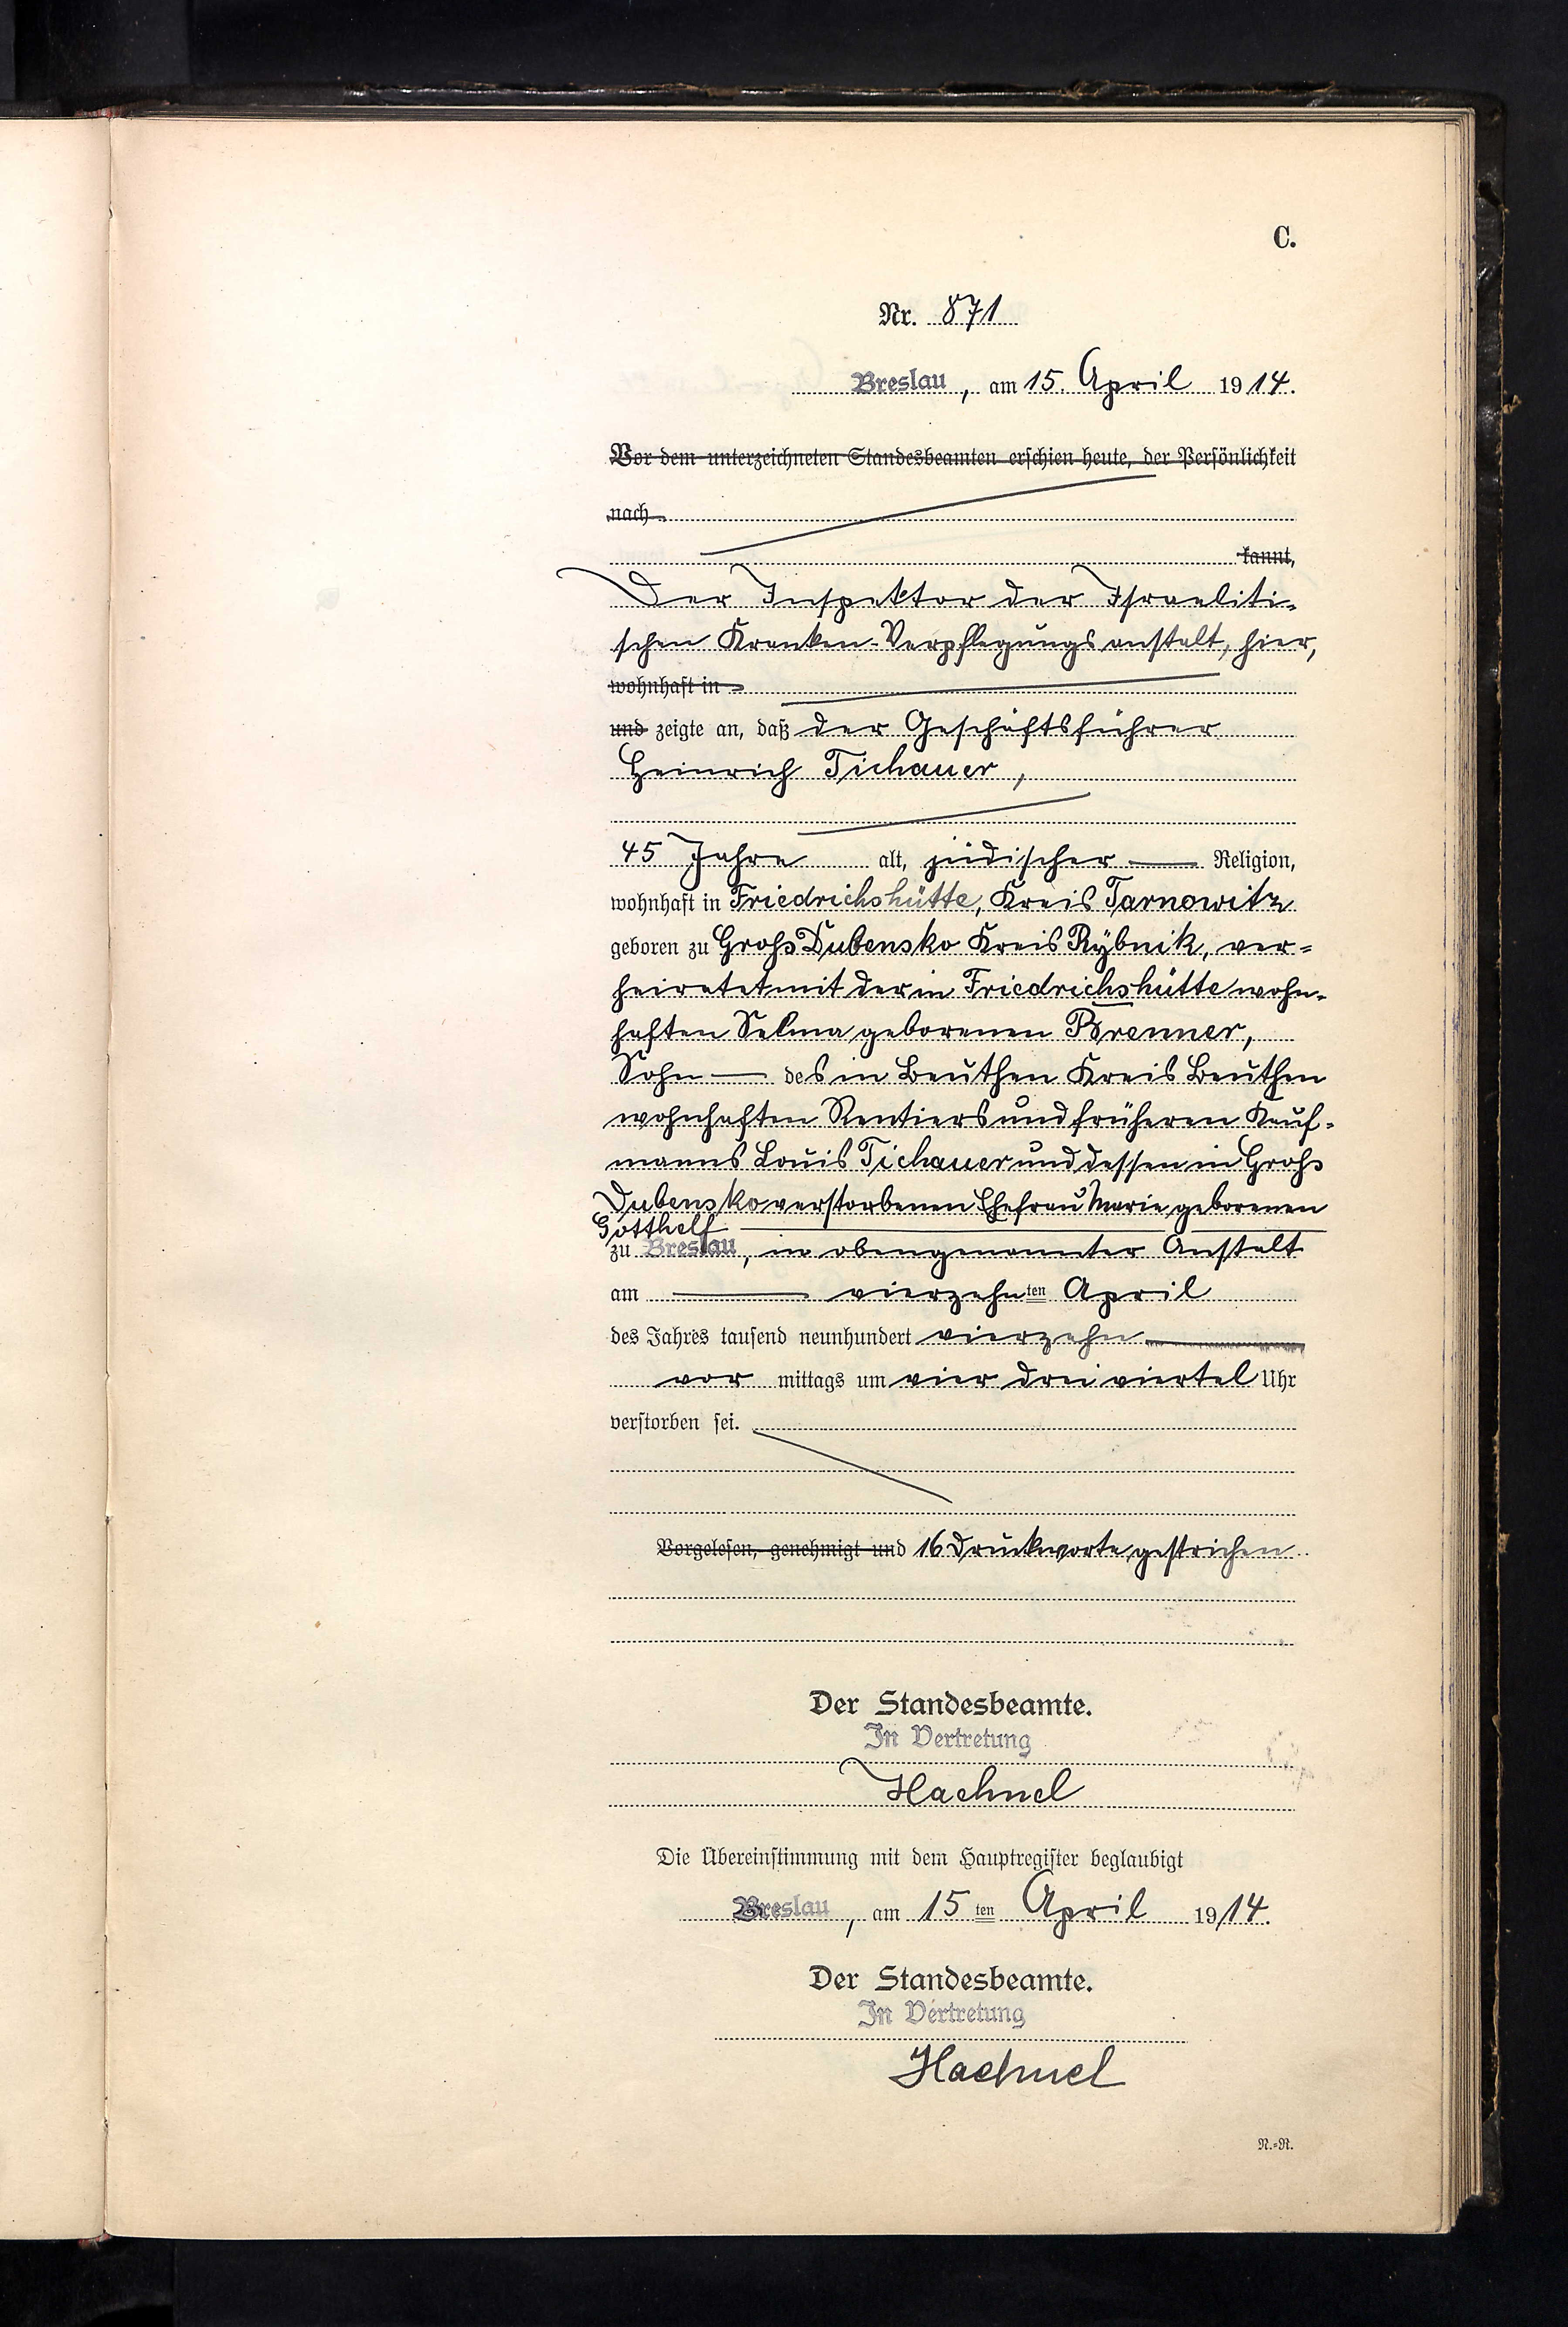 C.
Nr. 871
Breslau, am 15. April 1914.
Vor dem unterzeichneten Standesbeamten erschien heute, der Persönlichkeit
nach
kannt,
Der Inspektor der Israeliti-
schen Kranken-Verpflegungsanstalt, hier,
wohnhaft in
und zeigte an, daß der Geschäftsführer
Heinrich Tichauer,
45 Jahre alt, jüdischer Religion,
wohnhaft in Friedrichshütte, Kreis Tarnowitz
geboren zu Groß Dubensko Kreis Rybnik, ver-
heiratet mit der in Friedrichshütte wohn-
haften Selma geborenen Brenner,
Sohn des in Beuthen Kreis Beuthen
wohnhaften Rentiers und früheren Kauf-
manns Louis Tichauer und dessen in Groß
Dubensko verstorbenen Ehefrau Marie geborenen
Gotthelf
zu Breslau, in obengenannter Anstalt
am vierzehnten April
des Jahres tausend neunhundert vierzehn
vor mittags um vier drei viertel Uhr
verstorben sei.
Vorgelesen, genehmigt und 16 Druckworte gestrichen
Der Standesbeamte.
In Vertretung
Haehnel
Die Übereinstimmung mit dem Hauptregister beglaubigt
Breslau, am 15ten April 1914.
Der Standesbeamte.
In Vertretung
Haehnel
N.=R.